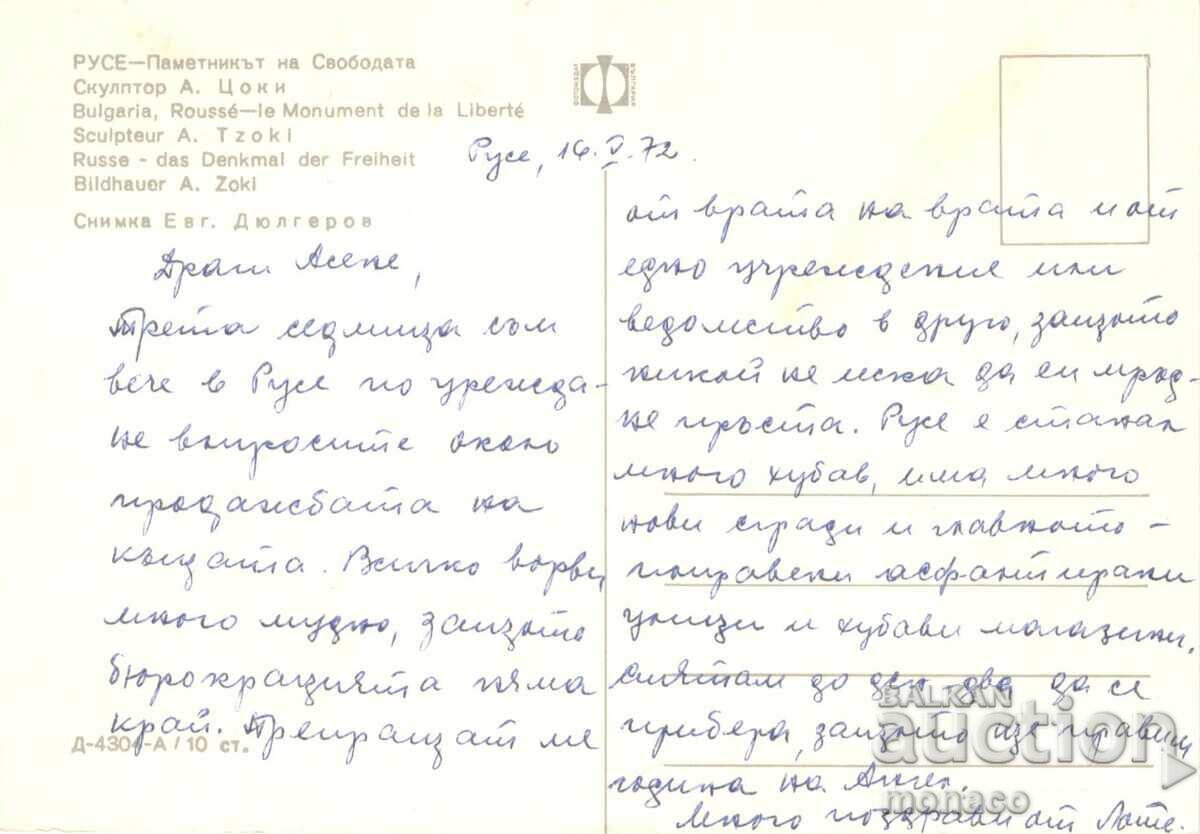 РУСЕ—Паметникът на Свободата
Скулптор А. Цоки
Bulgaria, Roussé—le Monument de la Liberté
Sculpteur A. Tzoki
Russe - das Denkmal der Freiheit
Bildhauer A. Zoki
Снимка Евг. Дюлгеров
ФОТОИЗДАТ
БЪЛГАРИЯ
Русе, 16.V.72.
Драги Асене,
трета седмица съм
вече в Русе по урежда-
не въпросите около
продажбата на
къщата. Всичко върви
много мудно, защото
бюрокрацията няма
край. Препращат ме
Д-4304-А/10 ст.
от врата на врата и от
едно учреждение или
ведомство в друго, защото
никой не иска да си мръд-
не пръста. Русе е станал
много хубав, има много
нови сгради и главното -
поправени асфалтирани
улици и хубави магазини.
Смятам до ден-два да се
прибера, защото ще правим
година на Ангел.
Много поздрави от Лоте.
BALKAN
auction
monaco